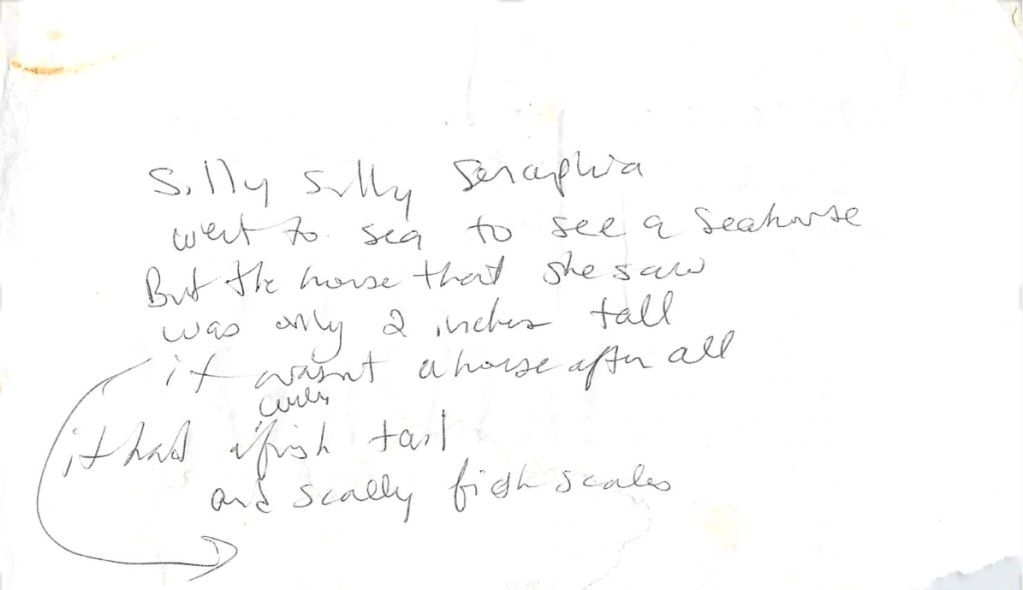 Silly Silly Seraphia
went to sea to see a seahorse
But the horse that she saw
was only 2 inches tall
it wasn't a horse after all
curly
it had a fish tail
and scally fish scales